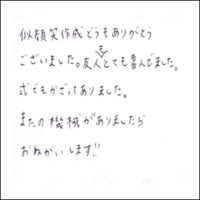 似顔笑作成どうもありがとう
ございました。友人もとても喜んでました。
式でもかざってありました。
またの機械がありましたら
おねがいします!!